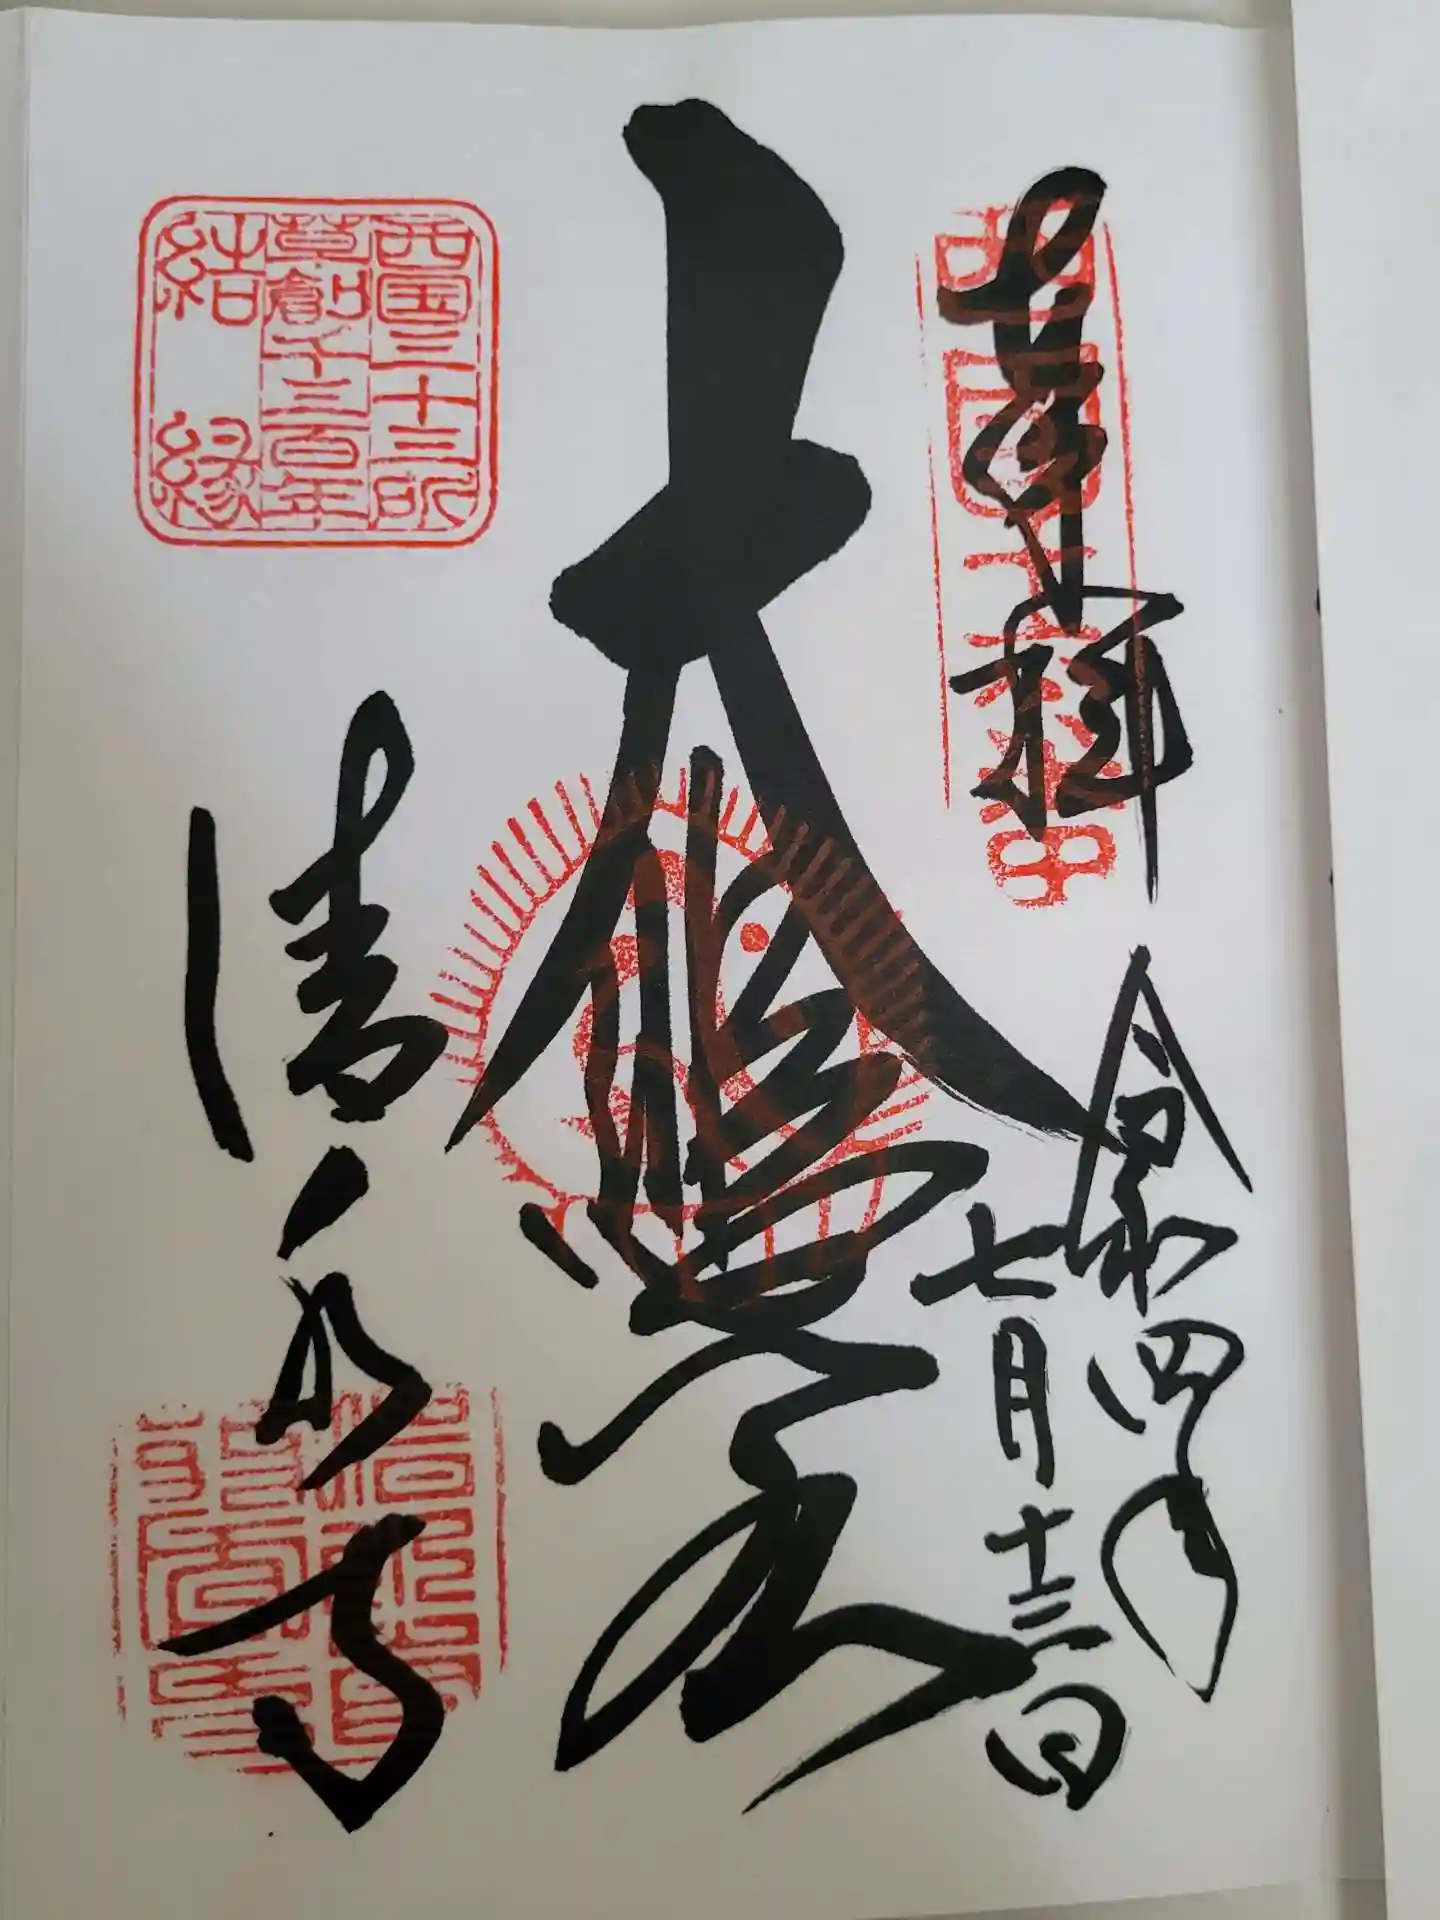 奉拝
西国十六番
令和四年
七月十三日
大悲閣
清水寺
西国三十三所
草創千三百年
結縁